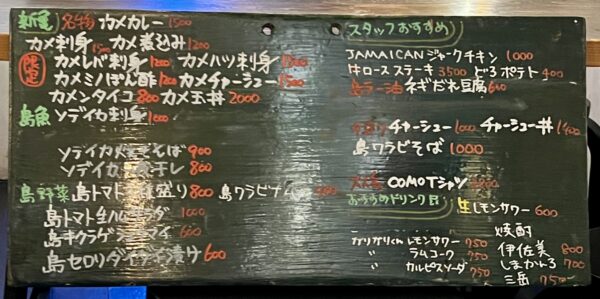 新亀 名物 カメカレー 1500
カメ刺身 1500 カメ煮込み 1200
限定 カメレバ刺身 1200 カメハツ刺身
カメミノぽん酢 1200 カメチャーシュー 1500
カメンタイコ 800 カメ玉丼 2000
島魚 ソデイカ刺身 1000
ソデイカ焼きそば 900
ソデイカ 干し 800
島野菜 島トマト 盛り 800 島ワラビナムル
島トマト生ハムサラダ 1000
島キクラゲ 600
島セロリ 漬け 600
スタッフおすすめ
JAMAICANジャークチキン 1000
牛ロースステーキ 3500 ポテト 400
島ラー油 ネギだれ豆腐 600
チャーシュー 1000 チャーシュー丼 1400
島ワラビそば 1000
COMOTシャツ
おすすめドリンク 生レモンサワー 600
焼酎
ガリガリくん レモンサワー 750 伊佐美 800
〃 ラムコーク 750 しまかんろ 700
〃 カルピスソーダ 750 三岳 750